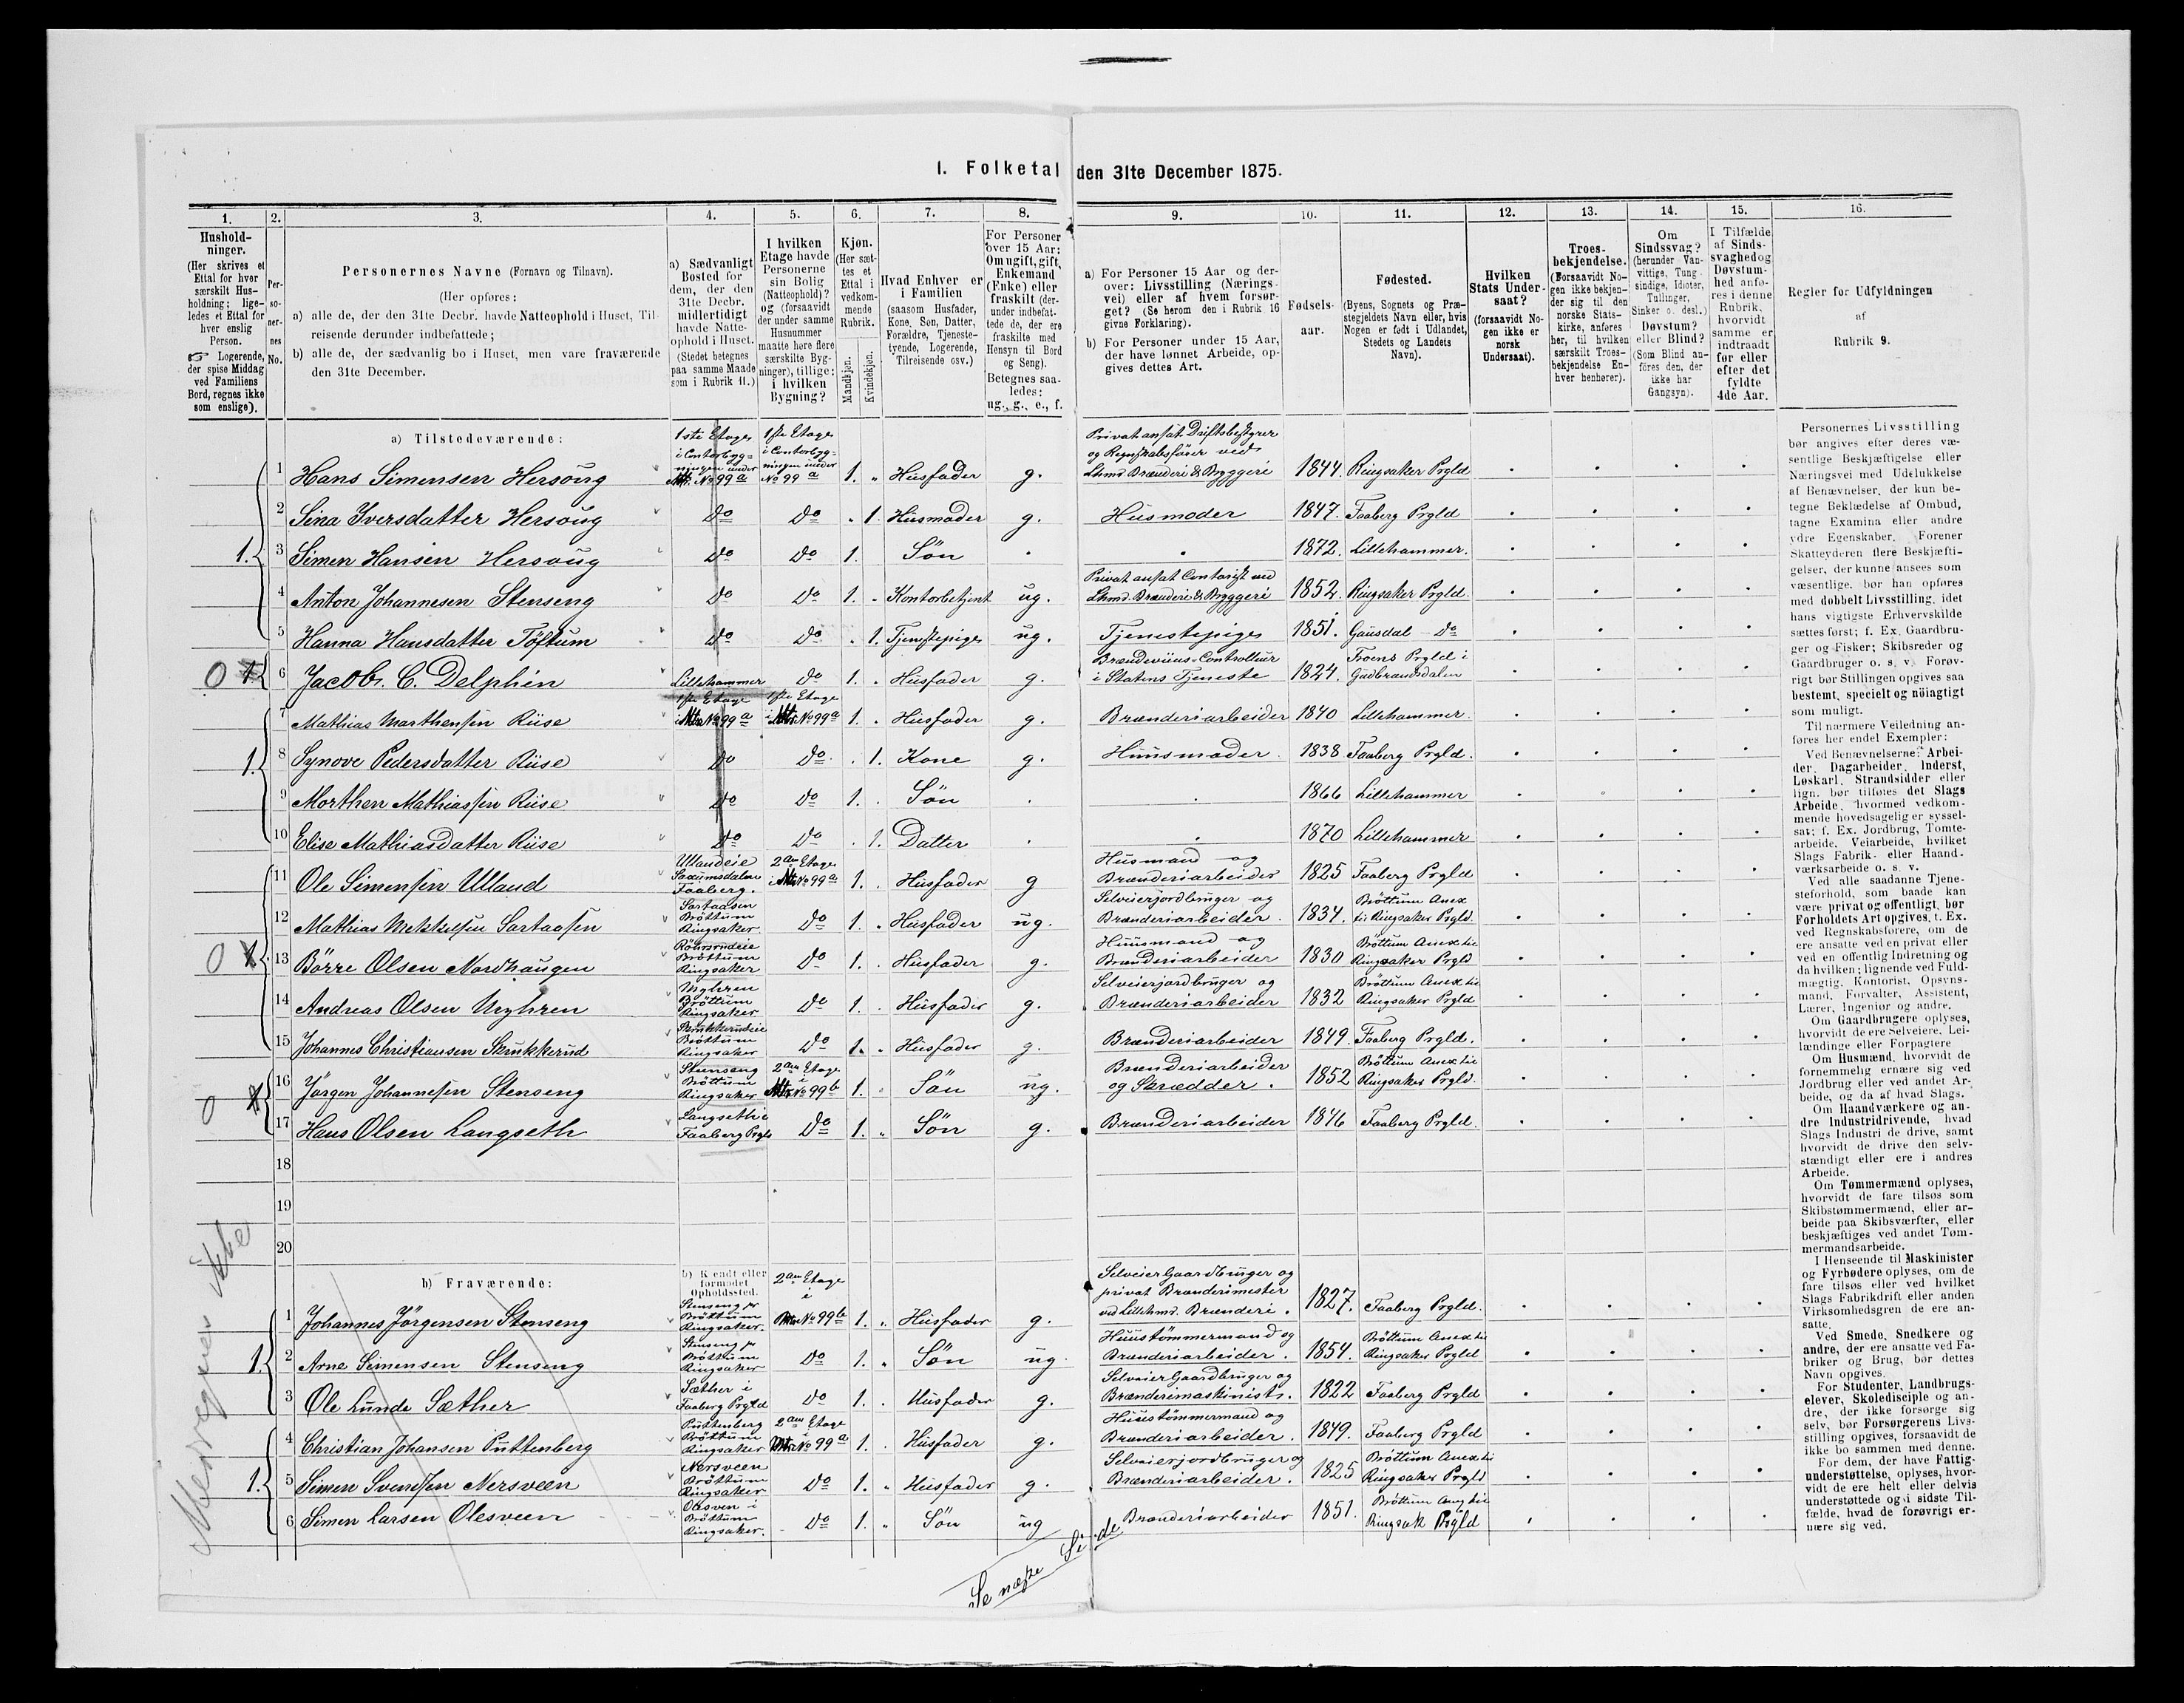 I. Folketal den 31te December 1875.
1. 2. 3. 4. 5. 6. 7. 8. 9. 10. 11. 12. 13. 14. 15. 16.
Hushold-
ninger.
(Her skrives et
Ettal for hver
særskilt Hus-
holdning; lige-
ledes et Ettal for
hver enslig
Person.
☞ Logerende,
der spise Middag
ved Familiens
Bord, regnes ikke
som enslige).
Per-
so-
ner-
nes
No.
Personernes Navne (Fornavn og Tilnavn).
(Her opføres:
a) alle de, der den 31te Decbr. havde Natteophold i Huset, Til-
reisende derunder indbefattede;
b) alle de, der sædvanlig bo i Huset, men vare fraværende
den 31te December.
a) Sædvanligt
Bosted for
dem, der den
31te Decbr.
midlertidigt
havde Natte-
ophold i Huset.
(Stedet betegnes
paa samme Maade
som i Rubrik 11.)
I hvilken
Etage havde
Personerne
sin Bolig
(Natteophold)?
og (forsaavidt
der under samme
Husnummer
maatte høre flere
særskilte Byg-
ninger), tillige:
i hvilken
Bygning?
Kjøn.
(Her sæt-
tes et
Ettal i
vedkom-
mende
Rubrik.
Mandkjøn.
Kvindekjøn.
Hvad Enhver er
i Familien
(saasom Husfader,
Kone, Søn, Datter,
Forældre, Tjeneste-
tyende, Logerende,
Tilreisende osv.)
For Personer
over 15 Aar:
Om ugift, gift,
Enkemand
(Enke) eller
fraskilt (der-
under indbefat-
tede de, der ere
fraskilte med
Hensyn til Bord
og Seng).
Betegnes saa-
ledes:
ug., g., e., f.
a) For Personer 15 Aar og der-
over: Livsstilling (Nærings-
vei) eller af hvem forsør-
get? (Se herom den i Rubrik 16
givne Forklaring).
b) For Personer under 15 Aar,
der have lønnet Arbeide, op-
gives dettes Art.
Fødsels-
aar.
Fødested.
(Byens, Sognets og Præ-
stegjeldets Navn eller, hvis
Nogen er født i Udlandet,
Stedets og Landets
Navn).
Hvilken
Stats Under-
saat?
(forsaavidt No-
gen ikke er
norsk
Undersaat).
Troes-
bekjendelse.
(Forsaavidt No-
gen ikke bekjen-
der sig til den
norske Stats-
kirke, anføres
her, til hvilken
særskilt Troes-
bekjendelse En-
hver henhører).
Om
Sindssvag?
(herunder Van-
vittige, Tung-
sindige, Idioter,
Tullinger,
Sinker o. desl.)
Døvstum?
eller Blind?
(Som Blind an-
føres den, der
ikke har
Gangsyn).
I Tilfælde
af Sinds-
svaghed og
Døvstum-
hed anfø-
res i denne
Rubrik,
hvorvidt
samme er
indtraadt
før eller
efter det
fyldte
4de Aar.
Regler for Udfyldningen
af
Rubrik 9.
a) Tilstedeværende:
1 Hans Simensen Hersoug 1ste Etage i Contorbyg= ningen under Mtr. No 99a 1ste Etage i Contorbyg= ningen under No 99a 1. " Husfader g. Privat ansat Driftsbestyrer og Regnskabsfører ved Lhmd. Brænderi & Bryggeri 1844. Ringsaker Prgld
2 Sina Iversdatter Hersoug Do Do " 1. Husmoder g. Husmoder 1847. Faaberg Prgld
1. 3 Simen Hansen Hersoug Do Do 1. Søn 1872. Lillehammer.
4 Anton Johannesen Stenseng Do Do 1. Kontorbetjent ug. Privat ansat Contorist ved Lhmd. Brænderi & Bryggeri 1852. Ringsaker Prgld.
5 Hanna Hansdatter Töftum Do Do 1. Tjenstepige ug. Tjenestepige 1851. Gausdal Do
0 1 6 Jacob C. Delphin Lillehammer Do 1. Husfader g. Brændeviins-Controlleur i Statens Tjeneste 1824. Froens Prgld i Gudbrandsdalen
7 Mathias Morthensen Riise 1ste Etage i Mtr. No 99a 1ste Etage i Mtr. No 99a 1. Husfader g. Brænderiarbeider 1840 Lillehammer.
1. 8 Synove Pedersdatter Riise Do Do 1. Kone g. Huusmoder. 1838 Faaberg Prgld.
9 Morthen Mathiassen Riise Do Do 1. Søn 1866 Lillehammer
10 Elise Mathiasdatter Riise Do Do 1. Datter 1870 Lillehammer
11 Ole Simensen Ulland Ullandeie Saxumsdalen Faaberg. 2den Etage i Mtr No 99a 1. Husfader g Husmand og Brænderiarbeider 1825 Faaberg Prgld
12 Mathias Sartaasen Sartaasen Bröttum Ringsaker Do 1. Husfader ug. Selveierjordbruger og Brænderiarbeider. 1834. Bröttum Anex til Ringsaker Prgld.
0 1 13 Börre Olsen Nordhaugen Bröttum Ringsaker Do 1. Husfader g. Huusmand og Brænderiarbeider 1830 Bröttum Anex til Ringsaker Prgld
14 Andreas Olsen Myhren Myhren Bröttum Ringsaker Do 1. Husfader g. Selveierjordbruger og Brænderiarbeider 1832 Bröttum Anex til Ringsaker Prgld
15 Johannes Christiansen Skrukkerud Skrukkerudeie Bröttum Ringsaker Do 1. " Husfader g. Brænderiarbeider 1849. Faaberg Prgld.
0 1 16 Jörgen Johannesen Stenseng Stenseng Bröttum Ringsaker 2den Etage i Mtr No 99b 1. Søn ug. Brænderiarbeider og Skrædder. 1852 Bröttum Anex til Ringsaker Prgld.
17 Hans Olsen Langseth Langsethie Faaberg Prgld Do 1. " Søn g. Brænderiarbeider 1846 Faaberg Prgld.
18
19
20
Medregnes ikke
b) Fraværende:
b) Kjendt eller
formodet
Opholdssted.
1 Johannes Jörgensen Stenseng Stenseng pr Bröttum Ringsaker. 2den Etage i Mtr No 99b 1. " Husfader g. Selveier Gaardbruger og privat Brænderimester ved Lillehmd. Brænderi. 1827. Faaberg Prgld.
1. 2 Arne Simensen Stenseng Stenseng pr Bröttum Ringsaker Do 1. " Søn ug. Huustömmermand og Brænderiarbeider. 1854. Bröttum Anex til Ringsaker Prgld
3 Ole Lunde Sæther Sæther i Faaberg Prgld Do 1. Husfader g. Selveier Gaardbruger og Brænderimaskinist. 1822 Faaberg Prgld
4 Christian Johansen Puttenberg Puttenberg Bröttum Ringsaker 2den Etage i Mtr No 99a 1. Husfader g. Huustömmermand og Brænderiarbeider. 1849. Faaberg Prgld
1. 5 Simen Svendsen Nersveen Nersveen Bröttum Ringsaker Do 1. " Husfader g. Selveierjordbruger og Brænderiarbeider. 1825 Bröttum Anex til Ringsaker Prgld
6 Simen Larsen Olesveen Olesven i Bröttum Ringsaker. Do 1. " Søn ug Brænderiarbeider 1851. Bröttum Anx til Ringsak Prgld
Se næste Side
Personernes Livsstilling
bør angives efter deres væ-
sentlige Beskjæftigelse eller
Næringsvei med Udelukkelse
af Benævnelser, der kun be-
tegne Beklædelse af Ombud,
tagne Examina eller andre
ydre Egenskaber. Forener
Skatteyderen flere Beskjæfti-
gelser, der kunne ansees som
væsentlige, bør han opføres
med dobbelt Livsstilling, idet
hans vigtigste Erhvervskilde
sættes først; f. Ex. Gaardbru-
ger og Fisker; Skibsreder og
Gaardbruger o. s. v. Forøv-
rigt bør Stillingen opgives saa
bestemt, specielt og nöiagtigt
som muligt.
Til nærmere Veiledning an-
føres her endel Exempler:
Ved Benævnelserne: Arbei-
der, Dagarbeider, Inderst,
Løskarl, Strandsidder eller
lign. bør tilføies det Slags
Arbeide, hvormed vedkom-
mende hovedsagelig er syssel-
sat; f. Ex. Jordbrug, Tomte-
arbeide, Veiarbeide, hvilket
Slags Fabrik- eller Haand-
værksarbeide o. s. v.
Ved alle saadanne Tjene-
steforhold, som baade kan
være privat og offentligt, bør
Forholdets Art opgives, t. Ex.
ved Regnskabsførere, om de
ere ansatte ved en privat eller
ved en offentlig Indretning og
da hvilken; lignende ved Fuld-
mægtig, Kontorist, Opsyns-
mand, Forvalter, Assistent,
Lærer, Ingeniør og andre.
Om Gaardbrugere oplyses,
hvorvidt de ere Selveiere, Lei-
lændinge eller Forpagtere
Om Husmænd, hvorvidt de
fornemmelig ernære sig ved
Jordbrug eller ved andet Ar-
beide, og da af hvad Slags.
Om Haandværkere og an-
dre Industridrivende, hvad
Slags Industri de drive, samt
hvorvidt de drive den selv-
stændigt eller ere i andres
Arbeide.
Om Tømmermænd oplyses,
hvorvidt de fare tilsøs som
Skibstømmermænd, eller ar-
beide paa Skibsværfter, eller
beskjæftiges ved andet Tøm-
mermandsarbeide.
I Henseende til Maskinister
og Fyrbødere oplyses, om de
fare tilsøs eller ved hvilket
Slags Fabrikdrift eller anden
Virksomhedsgren de ere an-
satte.
Ved Smede, Snedkere og
andre, der ere ansatte ved Fa-
briker og Brug, bør dettes
Navn opgives.
For Studenter, Landbrugs-
elever, Skoledisciple og an-
dre, der ikke forsørge sig
selv, bør Forsørgerens Livs-
stilling opgives, forsaavidt de
ikke bo sammen med denne.
For dem, der have Fattig-
understøttelse, oplyses, hvor-
vidt de ere helt eller delvis
understøttede og i sidste Til-
fælde, hvad de forøvrigt er-
nære sig ved.